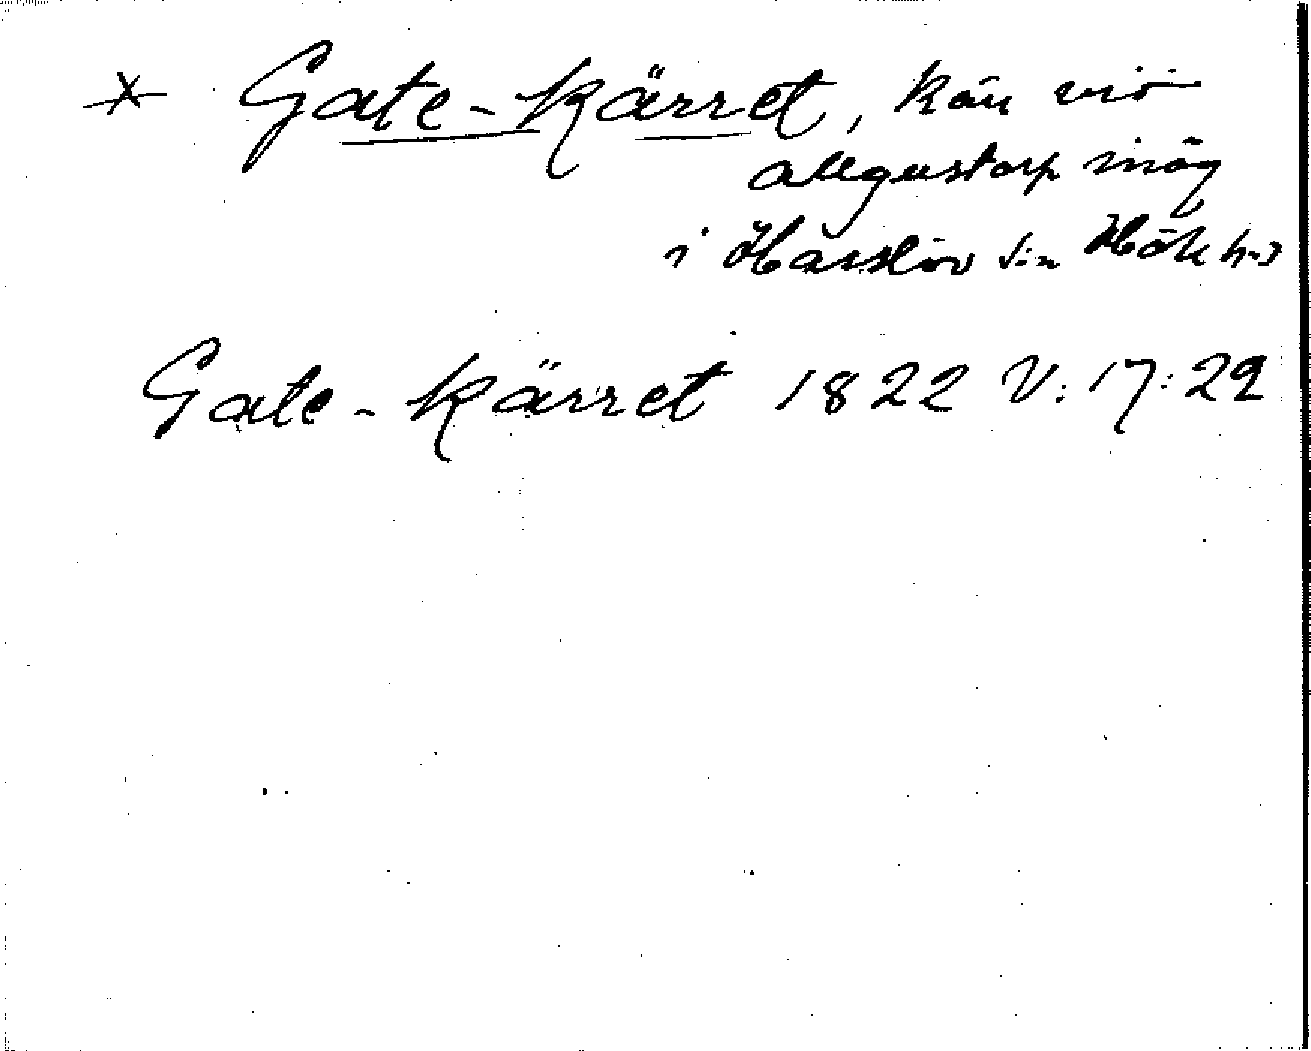 * Gate-kärret, kärr vid
Allgustorp inäg
i Hasslöv s:n Hök h:d
Gate-kärret 1822 V: 17: 22